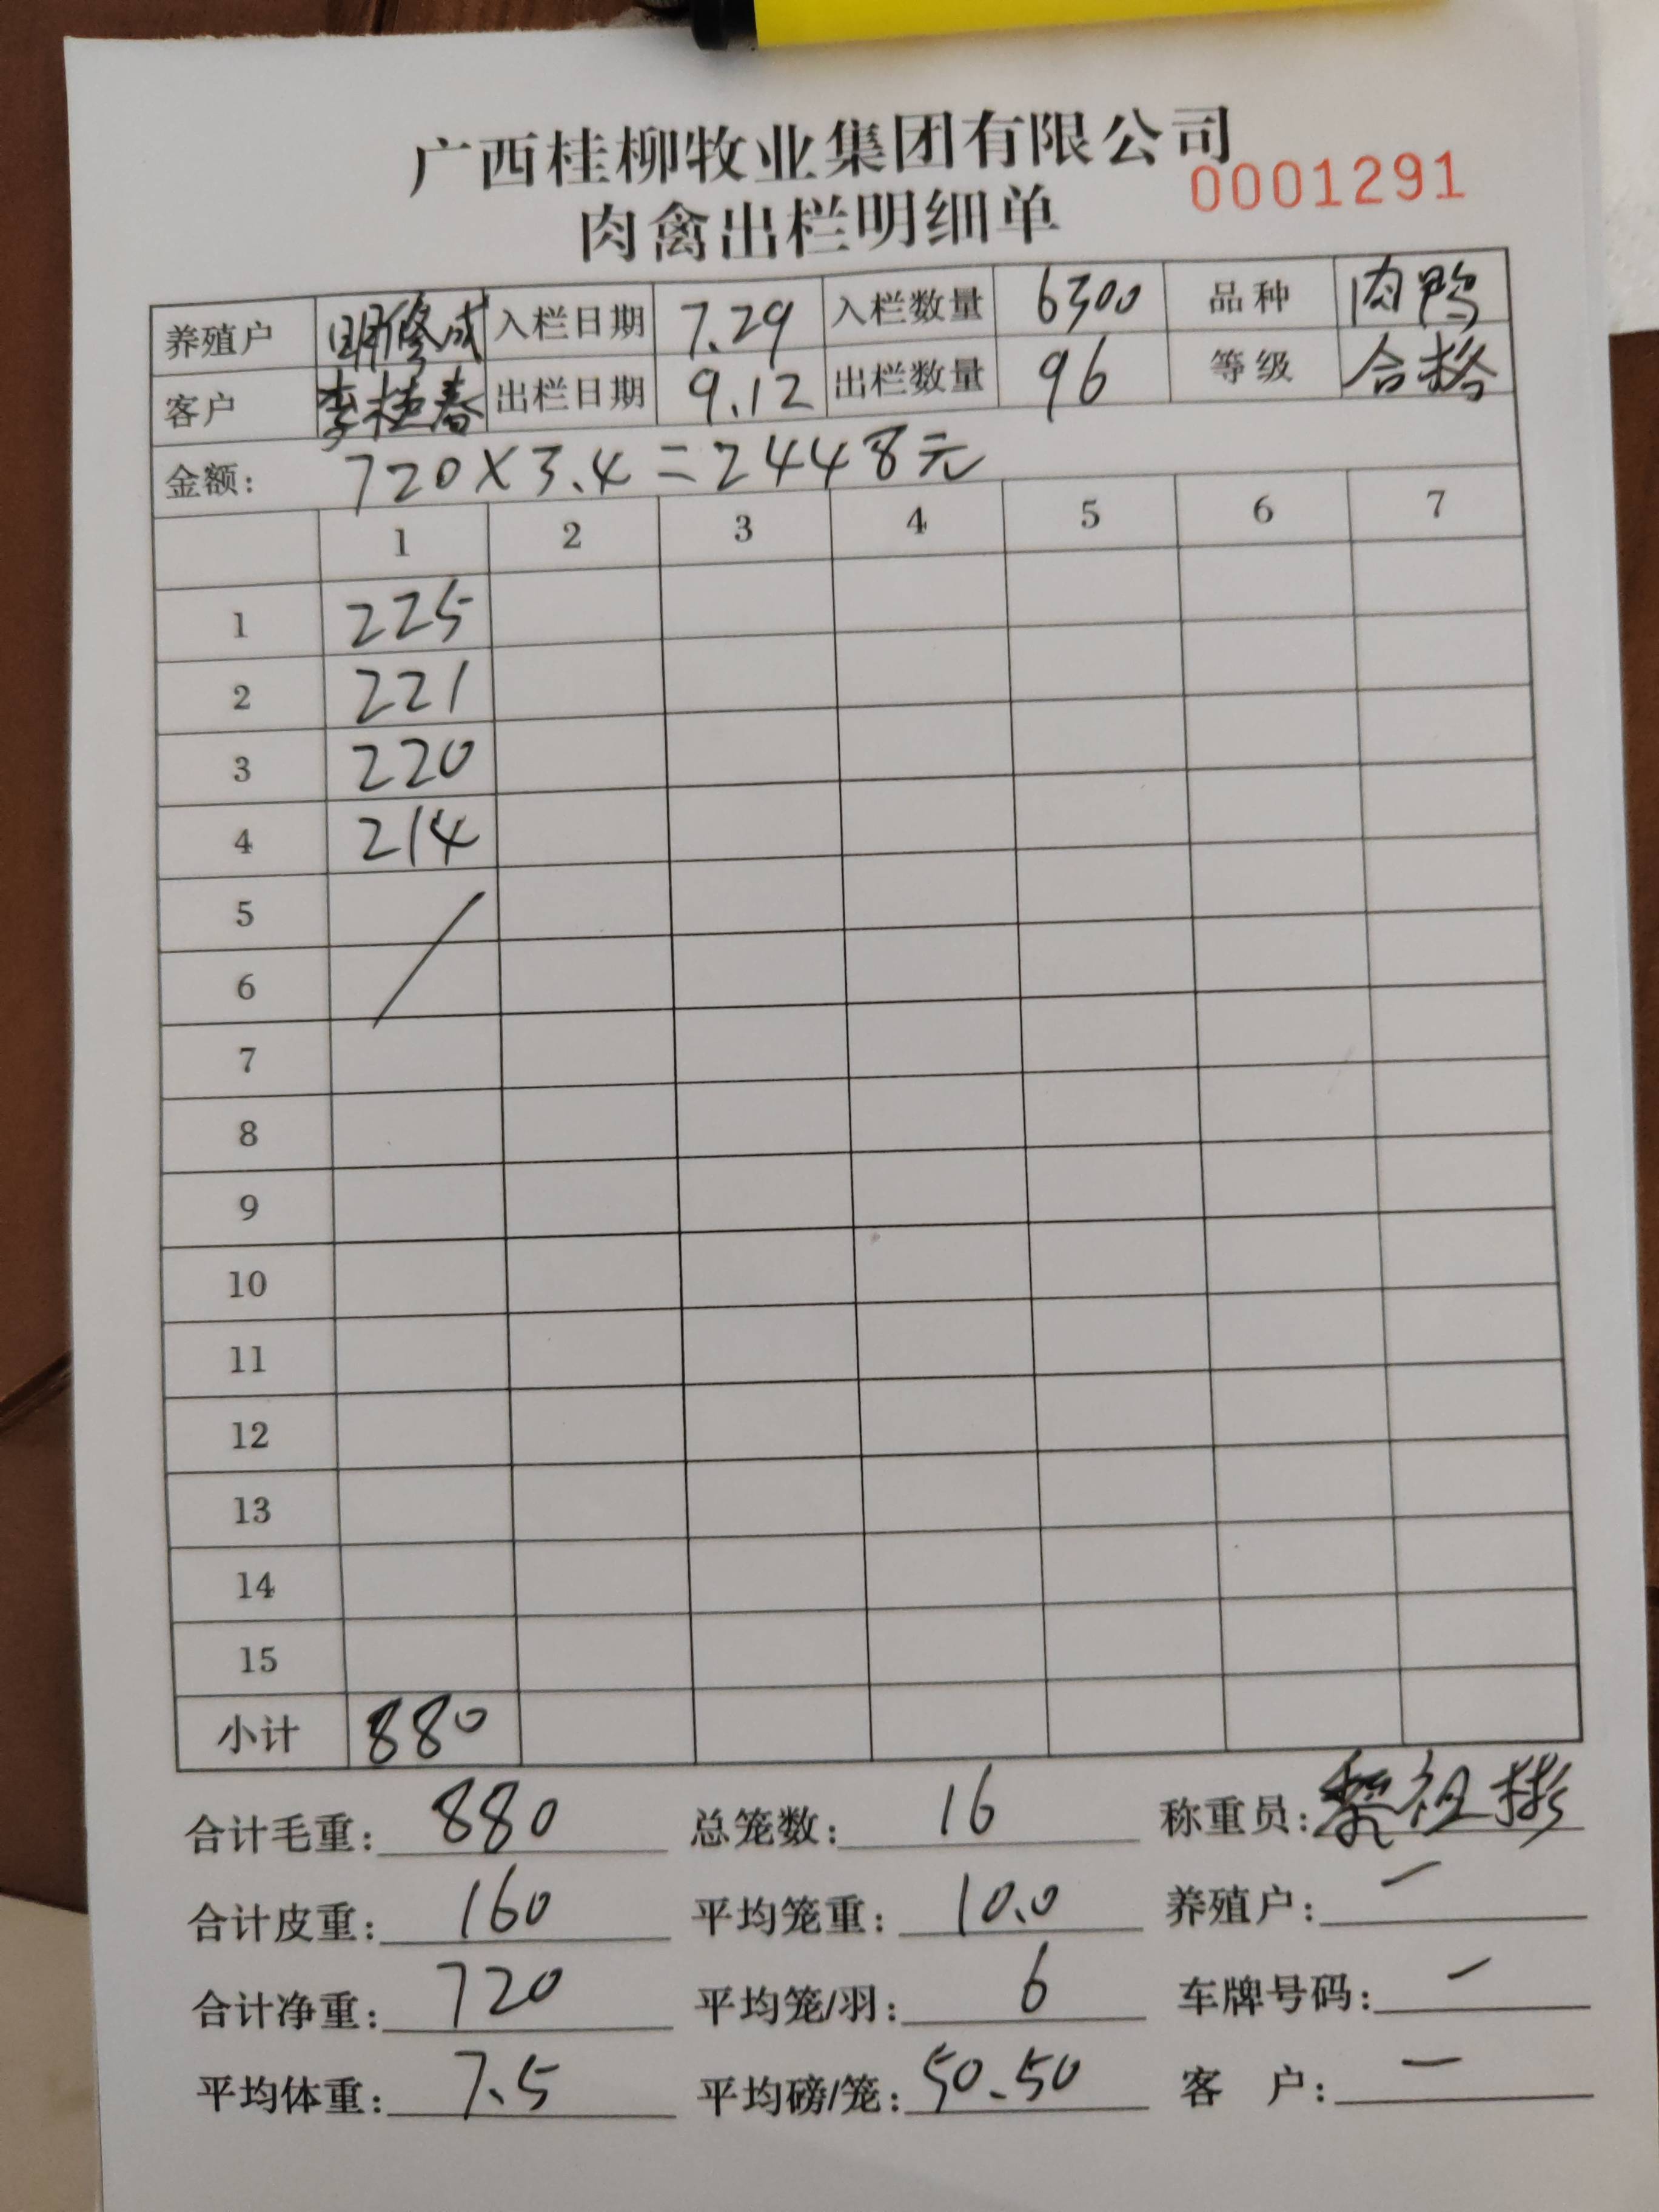 广西桂柳牧业集团有限公司
肉禽出栏明细单 0001291
养殖户 明修成 入栏日期 7.29 入栏数量 6300 品种 肉鸭
客户 李桂春 出栏日期 9.12 出栏数量 96 等级 合格
金额: 720×3.4=2448元
1 2 3 4 5 6 7
1 225
2 221
3 220
4 214
5
6
7
8
9
10
11
12
13
14
15
小计 880
合计毛重: 880 总笼数: 16 称重员: 黎祖彬
合计皮重: 160 平均笼重: 10.0 养殖户: 一
合计净重: 720 平均笼/羽: 6 车牌号码: 一
平均体重: 7.5 平均磅/笼: 50.50 客 户: 一